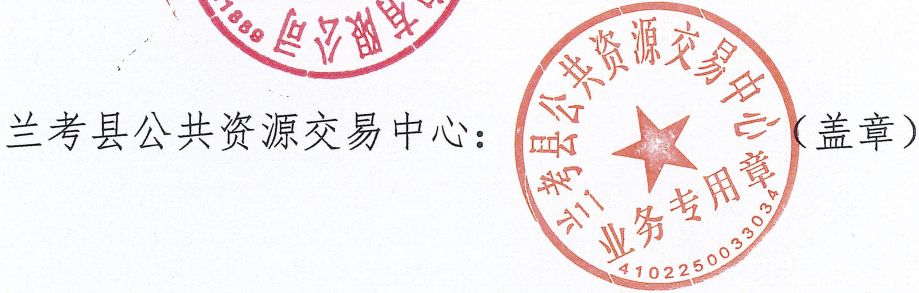 有限公司
1889
兰考县公共资源交易中心：
（盖章）
兰考县公共资源交易中心
业务专用章
4102250033034